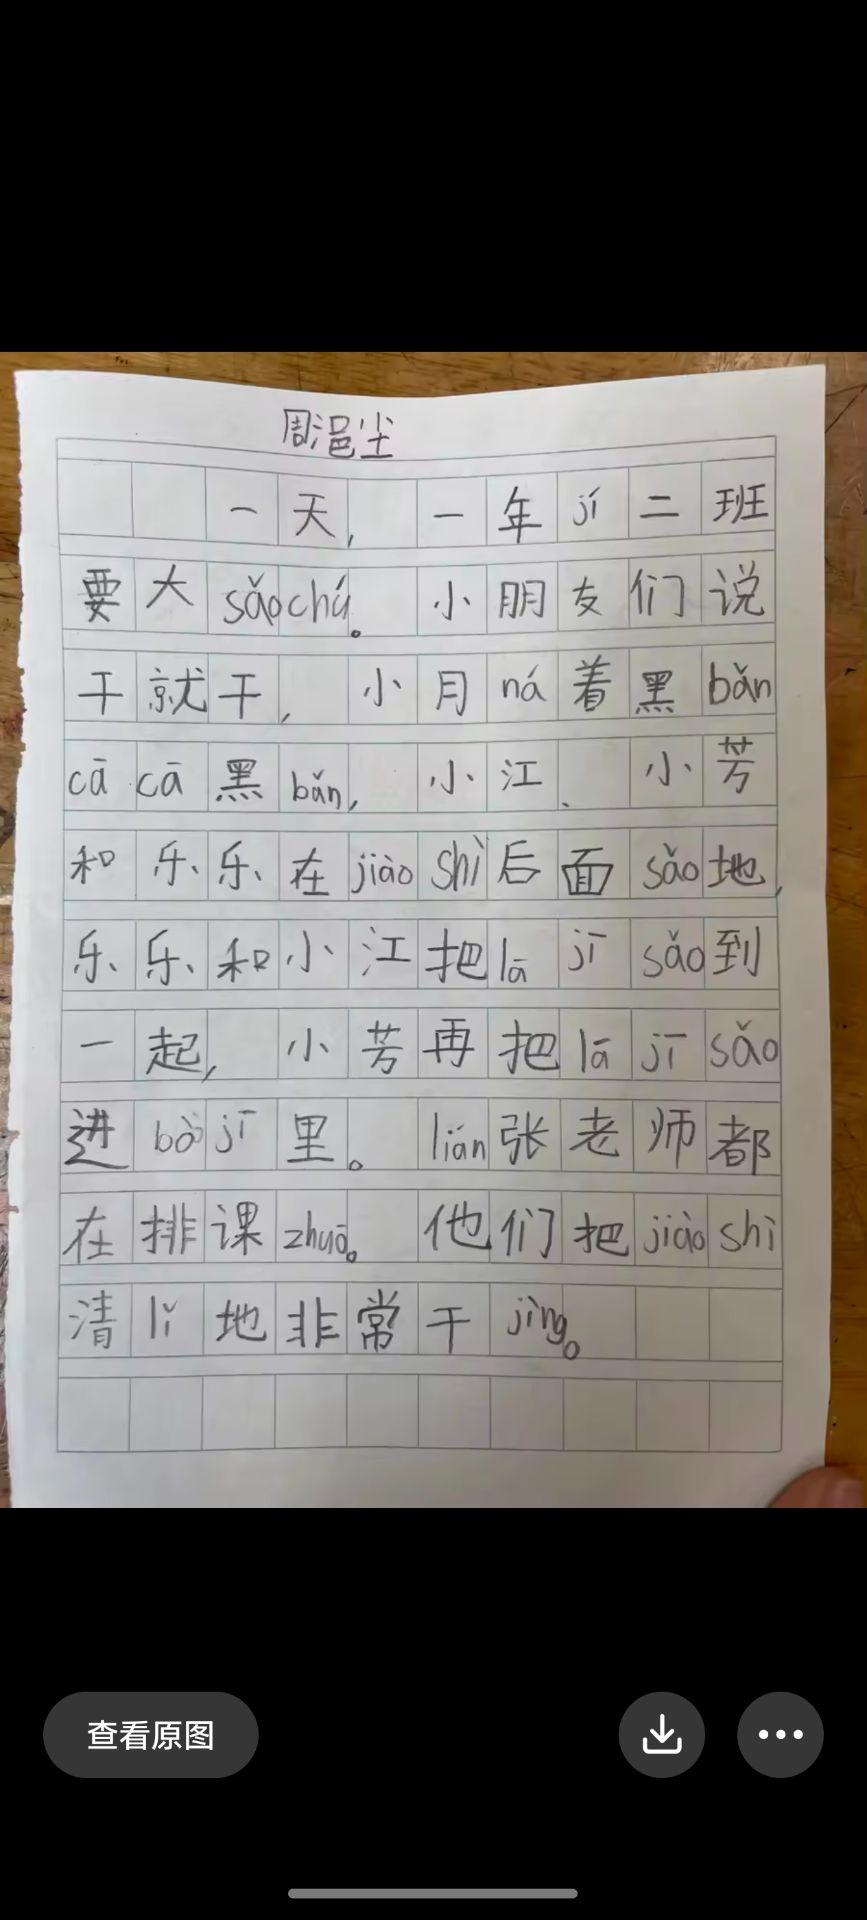 周浥尘
一天，一年jí二班
要大sǎochú。小朋友们说
干就干，小月ná着黑bǎn
cā cā黑bǎn，小江、小芳
和乐乐在jiào shì后面sǎo地，
乐乐和小江把lā jī sǎo到
一起，小芳再把lā jī sǎo
进bò jī里。lián张老师都
在排课zhuō。他们把jiào shì
清lǐ地非常干jìng。
查看原图